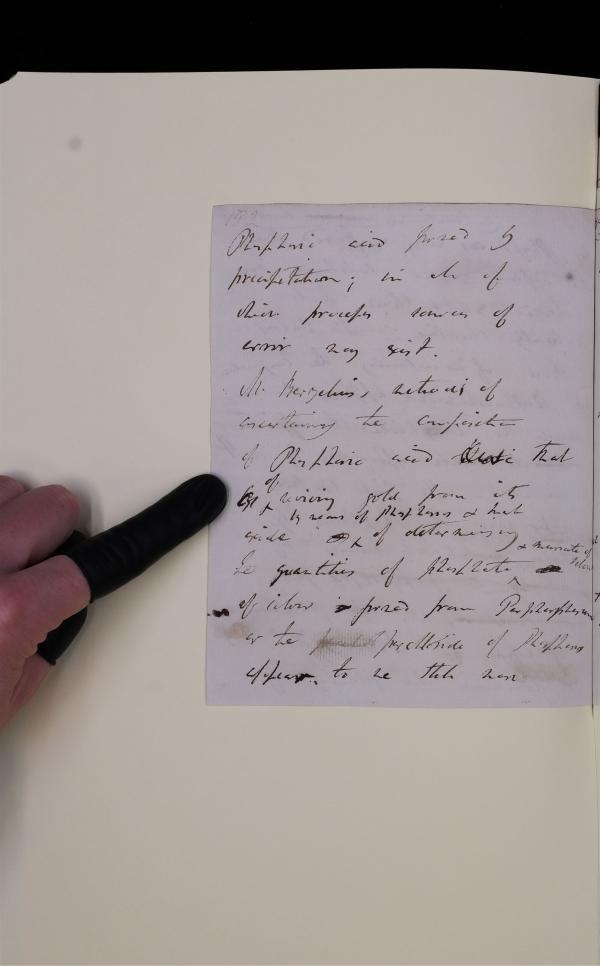 Phosphoric acid formed by
precipitation; in all of
these processes sources of
error may exist.
M. Berzelius, methods of
ascertaining the composition
of Phosphoric acid that
of reviving gold from its
by means of Phosphorus & that
oxide of determining
& muriate of silver
the quantities of phosphate
of silver formed from
or the perchloride of Phosphorus
appear to me still more